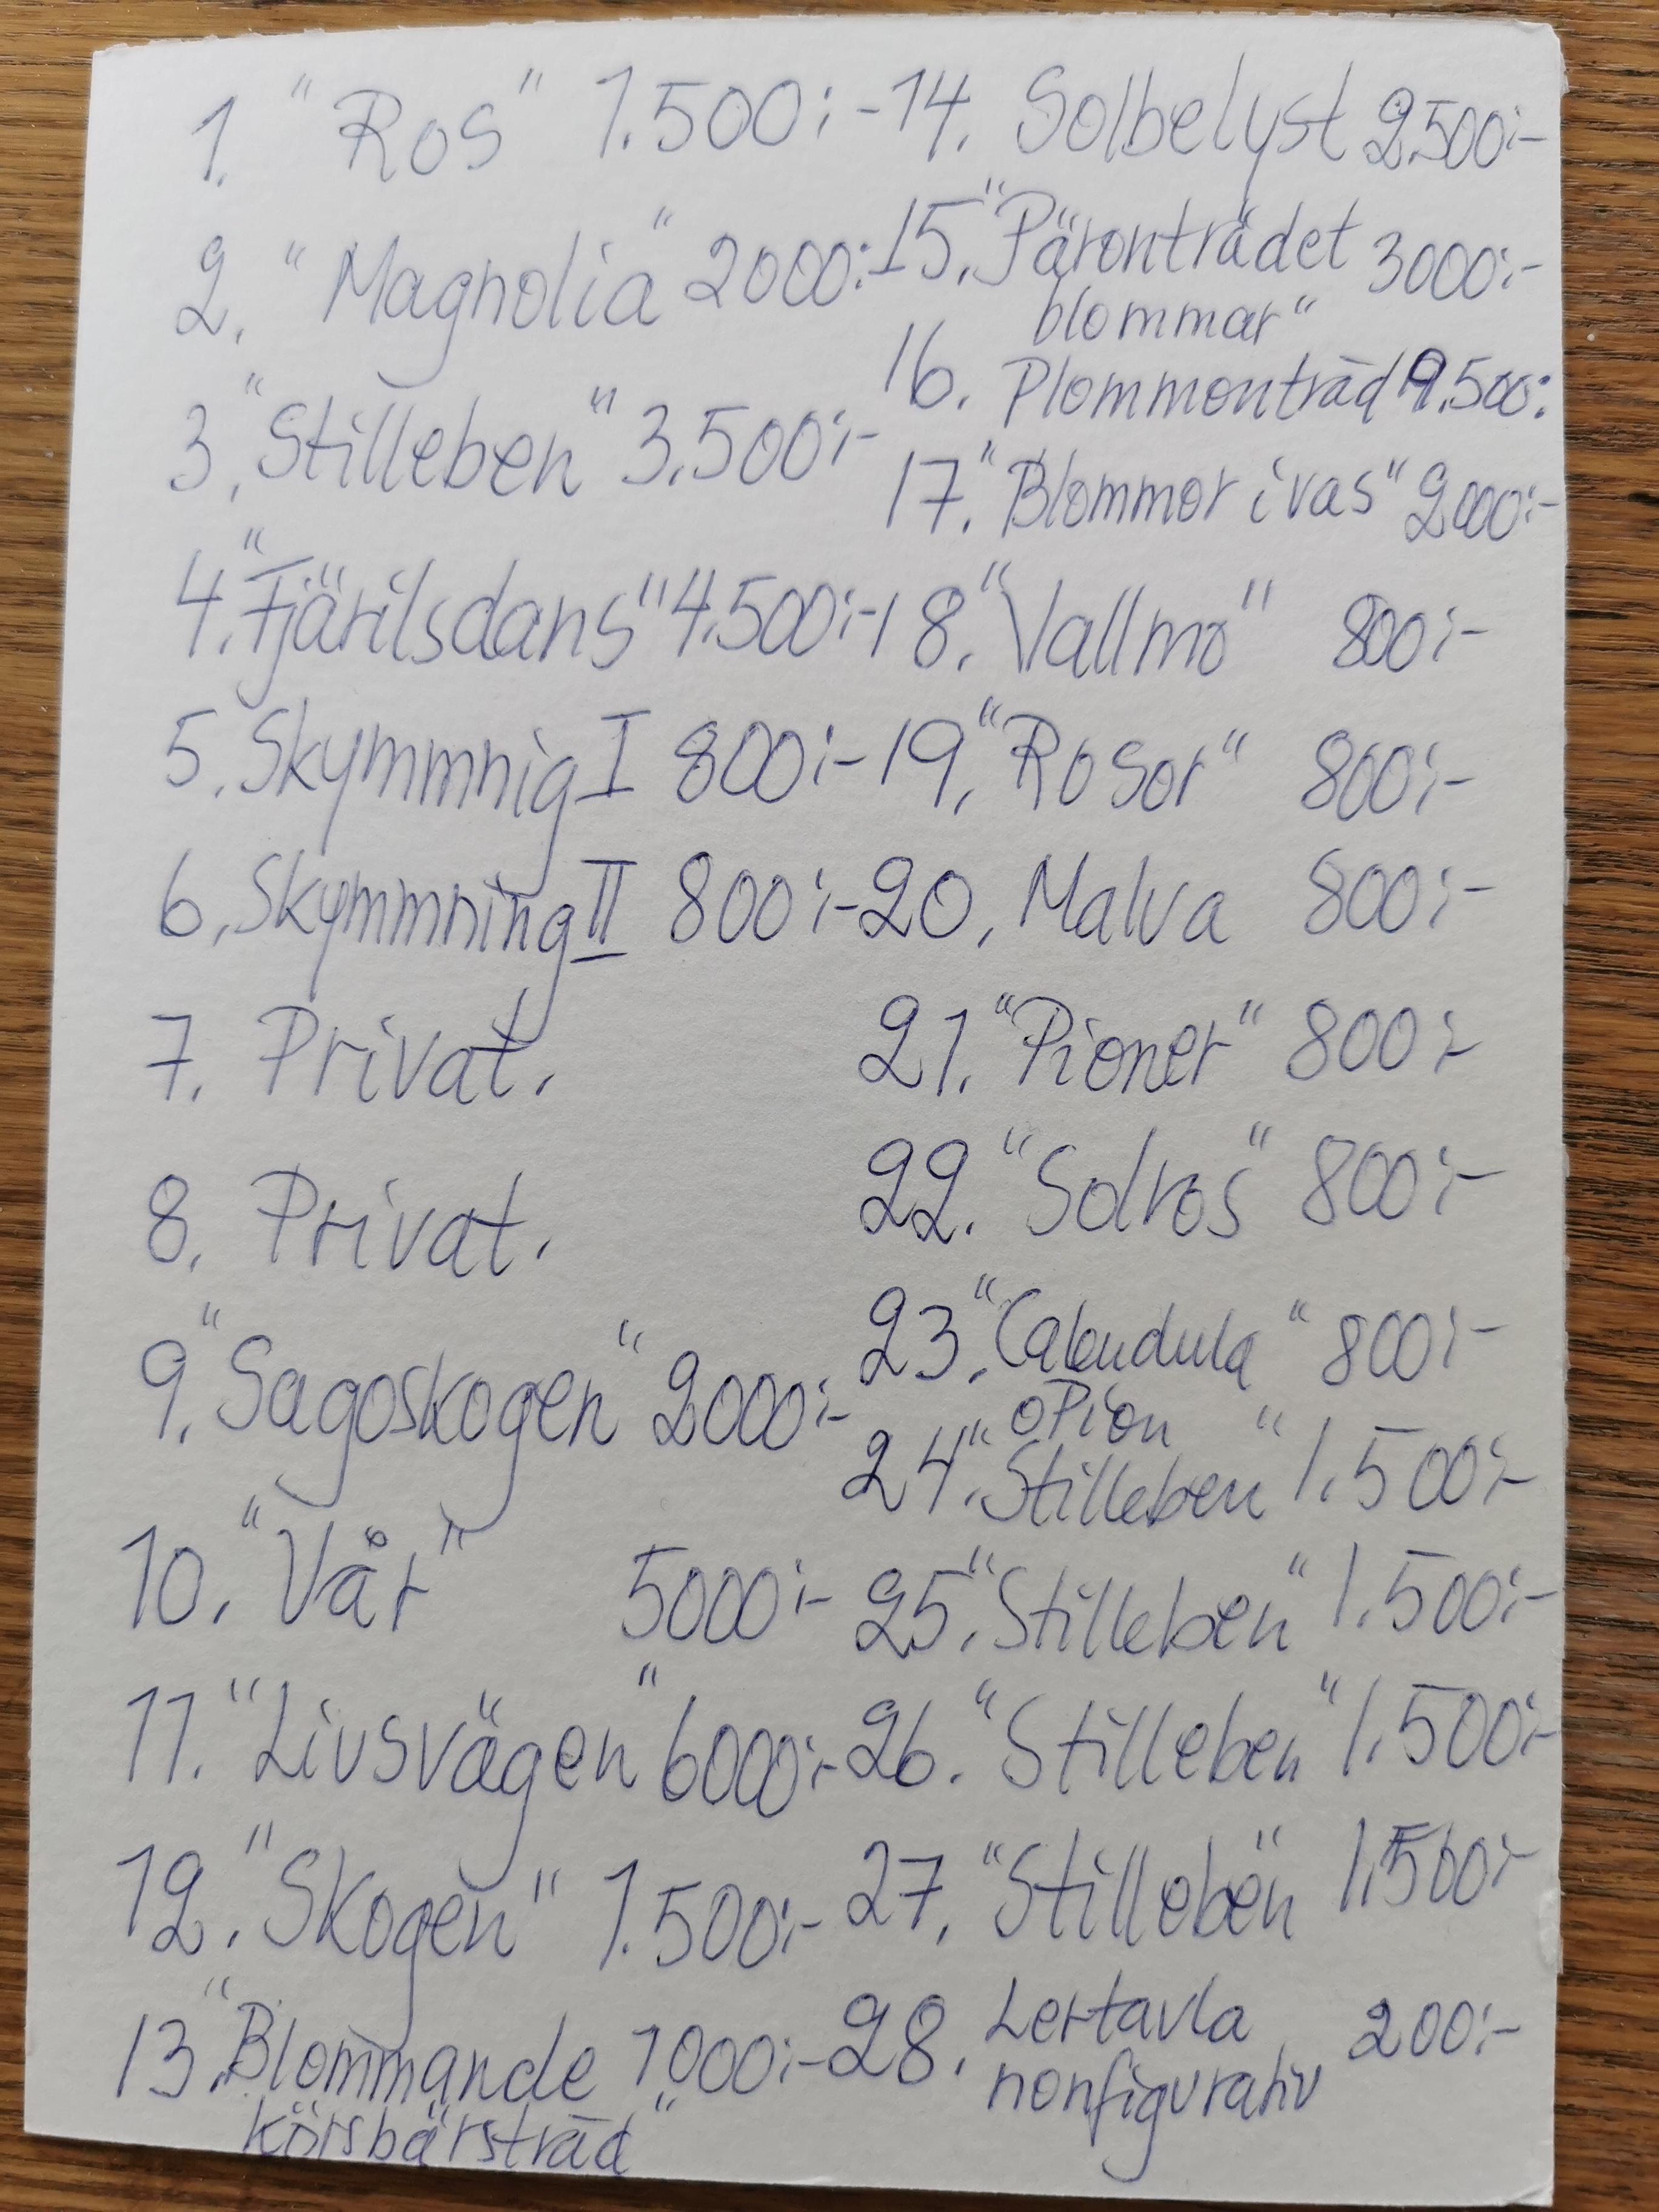 1. "Ros" 1.500:-
2. "Magnolia" 2000:-
3. "Stilleben" 3.500:-
4. "Fjärilsdans" 4.500:-
5. Skymmnig I 800:-
6. Skymmning II 800:-
7. Privat.
8. Privat.
9. "Sagoskogen" 2000:-
10. "Vår" 5000:-
11. "Livsvägen" 6000:-
12. "Skogen" 1.500:-
13. "Blommande 1000:-
körsbärsträd"
14. Solbelyst 2.500:-
15. "Päronträdet 3000:-
blommar"
16. Plommonträd
17. "Blommor i vas" 2000:-
18. "Vallmo" 800:-
19. "Rosor" 800:-
20. Malva 800:-
21. "Pioner" 800:-
22. "Solros" 800:-
23. "Calendula" 800:-
o Pion
24. "Stilleben" 1.500:-
25. "Stilleben" 1.500:-
26. "Stilleben" 1.500:-
27. "Stilleben" 1.500:-
28. Lertavla 200:-
nonfigurativ